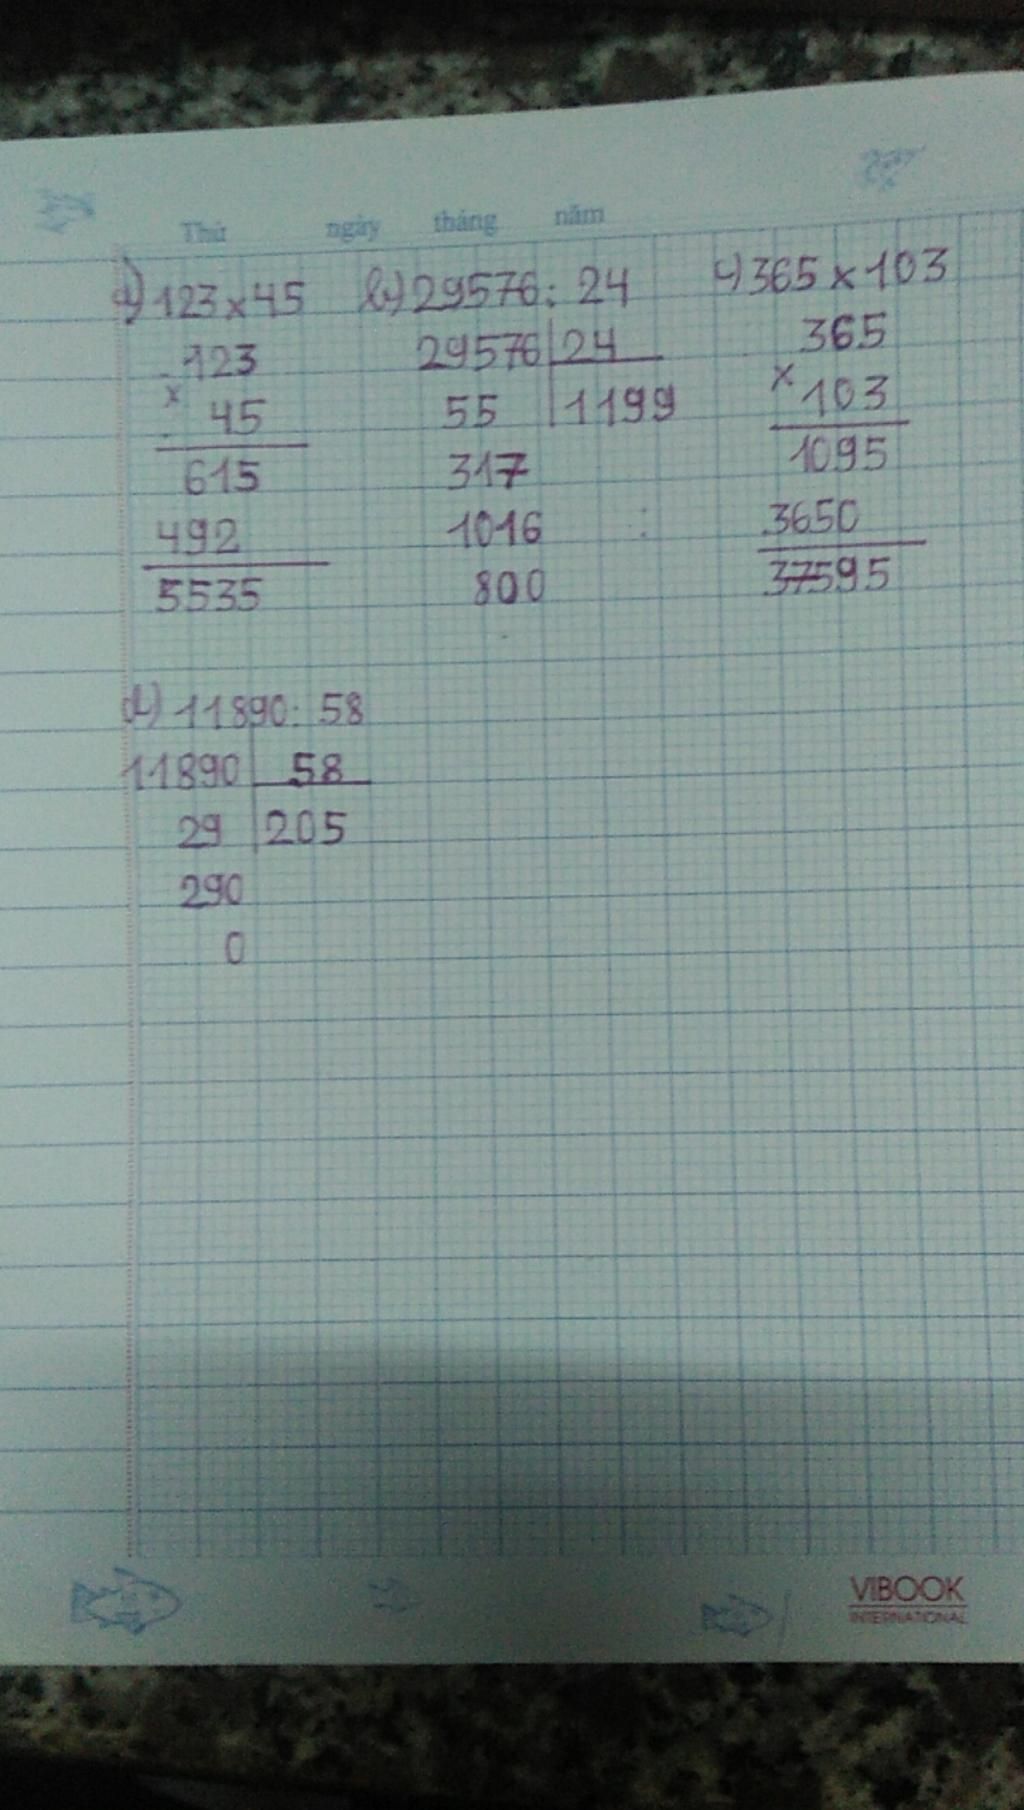 Thứ ngày tháng năm
a) 123 x 45
123
x
45
615
492
5535
b) 29576 : 24
29576 24
55 1199
317
1016
800
c) 365 x 103
365
x
103
1095
3650
37595
d) 11890 : 58
11890 58
29 205
290
0
VIBOOK
INTERNATIONAL